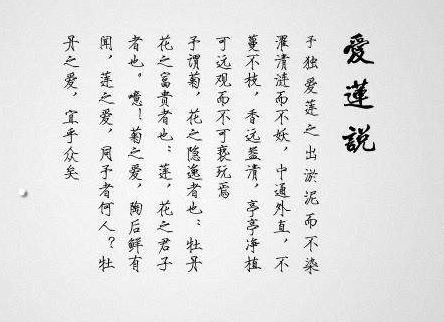 愛蓮説
予独爱莲之出淤泥而不染
濯清涟而不妖，中通外直，不
蔓不枝，香远益清，亭亭净植
可远观而不可亵玩焉
予谓菊，花之隐逸者也；牡丹
花之富贵者也；莲，花之君子
者也。噫！菊之爱，陶后鲜有
闻，莲之爱，同予者何人？牡
丹之爱，宜乎众矣